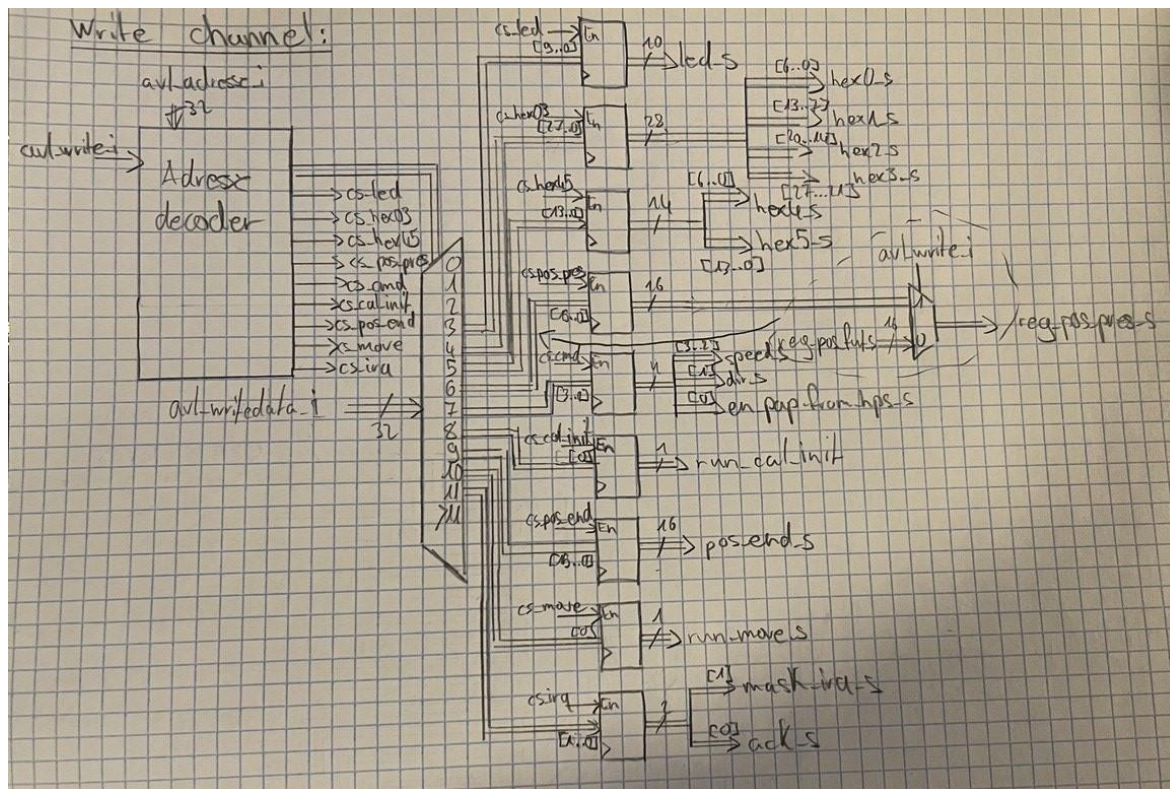 Write channel:
avl_adress_i
32
avl_write_i
Adress
decoder
cs_led
cs_hex03
cs_hex45
cs_pos_pres
cs_cmd
cs_cal_init
cs_pos_end
cs_move
cs_irq
avl_writedata_i
32
0
1
2
3
4
5
6
7
8
9
10
11
>11
cs_led
En
[9..0]
10
led_s
cs_hex03
En
[27..0]
28
[6..0]
hex0_s
[13..7]
hex1_s
hex2_s
hex3_s
[27...21]
cs_hex45
En
[13..0]
14
[6..0]
hex4_s
hex5_s
[13..0]
cs_pos_pres
En
16
avl_write_i
1
0
reg_pos_fut_s
16
reg_pos_pres_s
cs_cmd
En
[3..0]
4
[3..2]
speed_s
[1]
dir_s
[0]
en_pap_from_hps_s
cs_cal_init
En
[0]
1
run_cal_init
cs_pos_end
En
16
pos_end_s
cs_move
En
[0]
1
run_move_s
cs_irq
En
[1..0]
2
[1]
mask_irq_s
[0]
ack_s